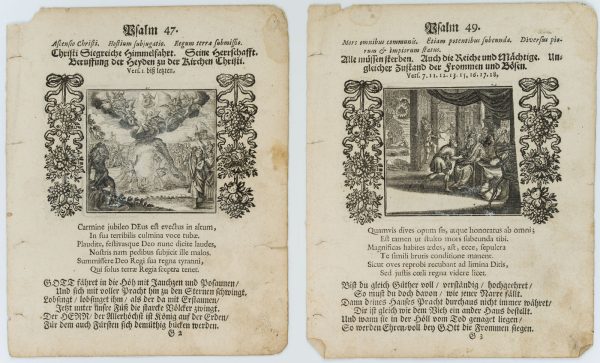 Psalm 47.
Ascensio Christi. Hostium subjugatio. Regum terræ submissio.
Christi Siegreiche Himmelfahrt. Seine Herrschafft.
Beruffung der Heyden zu der Kirchen Christi.
Vers. 1. biß letzten.
Carmine jubileo DEus est evectus in altum,
In sua terribilis culmina voce tubæ.
Plaudite, festivasque Deo nunc dicite laudes,
Nostris nam pedibus subjicit ille malos.
Summisere Deo Regi sua regna tyranni,
Qui solus terræ Regia sceptra tenet.
GOTT fähret in die Höh mit Jauchzen und Posaunen/
Und sich mit voller Pracht hin zu den Sternen schwingt.
Lobsingt / lobsinget ihm / als der da mit Erstaunen/
Jetzt unter unsre Füß die starcke Völcker zwingt.
Der HERR/ der Allerhöchst ist König auf der Erden/
Für dem auch Fürsten sich demüthig bücken werden.
G 2
Psalm 49.
Mors omnibus communis. Etiam potentibus subeunda. Diversus pio-
rum & impiorum status.
Alle müssen sterben. Auch die Reiche und Mächtige. Un-
gleicher Zustand der Frommen und Bösen.
Vers. 7. 11. 12. 13. 15. 16. 17. 18.
Quamvis dives opum sis, atque honoratus ab omni;
Est tamen ut stulto mors subeunda tibi.
Magnificas habites ædes, ast, ecce, sepulcra
Te simili brutis conditione manent.
Sicut oves reprobi recubant ad limina Ditis,
Sed justis cœli regna videre licet.
Bist du gleich Güther voll / verständig / hochgeehret/
So must du doch davon / wie jener Narre fällt.
Dann deines Hauses Pracht durchaus nicht immer währet/
Dir ist gleich wie dem Vieh ein ander Haus bestellt.
Und wann sie in der Höll vom Tod genaget liegen/
So werden Ehren/voll bey GOtt die Frommen siegen.
G 3